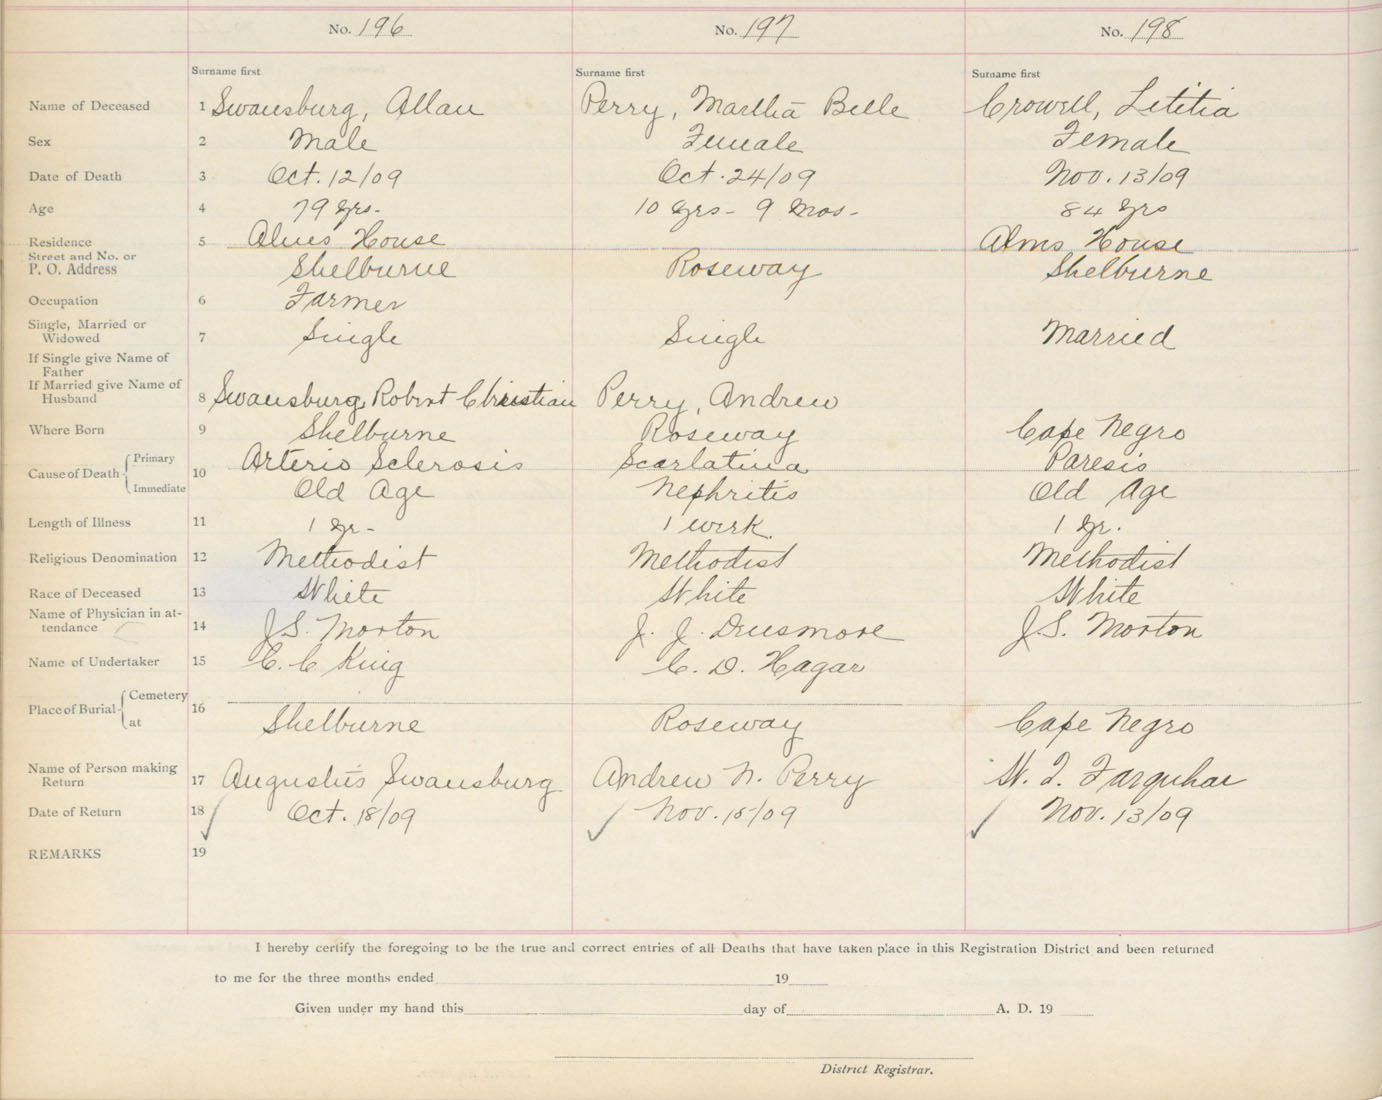 No. 196 No. 197 No. 198
Surname first Surname first Surname first
Name of Deceased 1 Swansburg, Allan Perry, Martha Belle Crowell, Letitia
Sex 2 Male Female Female
Date of Death 3 Oct. 12/09 Oct. 24/09 Nov. 13/09
Age 4 79 yrs. 10 yrs - 9 Mos - 84 yrs
Residence 5 Alms House Alms House
Street and No. or
P. O. Address Shelburne Roseway Shelburne
Occupation 6 Farmer
Single, Married or
Widowed 7 Single Single Married
If Single give Name of
Father
If Married give Name of
Husband 8 Swansburg, Robert Christian Perry, Andrew
Where Born 9 Shelburne Roseway Cape Negro
Cause of Death Primary 10 Arterio Sclerosis Scarlatina Paresis
Immediate Old Age Nephritis Old Age
Length of Illness 11 1 yr - 1 week 1 yr.
Religious Denomination 12 Methodist Methodist Methodist
Race of Deceased 13 White White White
Name of Physician in at-
tendance 14 J.S. Morton J. J. Dinsmore J.S. Morton
Name of Undertaker 15 C. C King C. D. Hagar
Place of Burial Cemetery 16
at Shelburne Roseway Cape Negro
Name of Person making
Return 17 Augustus Swansburg Andrew N. Perry W. J. Farquhar
Date of Return 18 Oct. 18/09 Nov. 15/09 Nov. 13/09
REMARKS 19
I hereby certify the foregoing to be the true and correct entries of all Deaths that have taken place in this Registration District and been returned
to me for the three months ended 19
Given under my hand this day of A. D. 19
District Registrar.